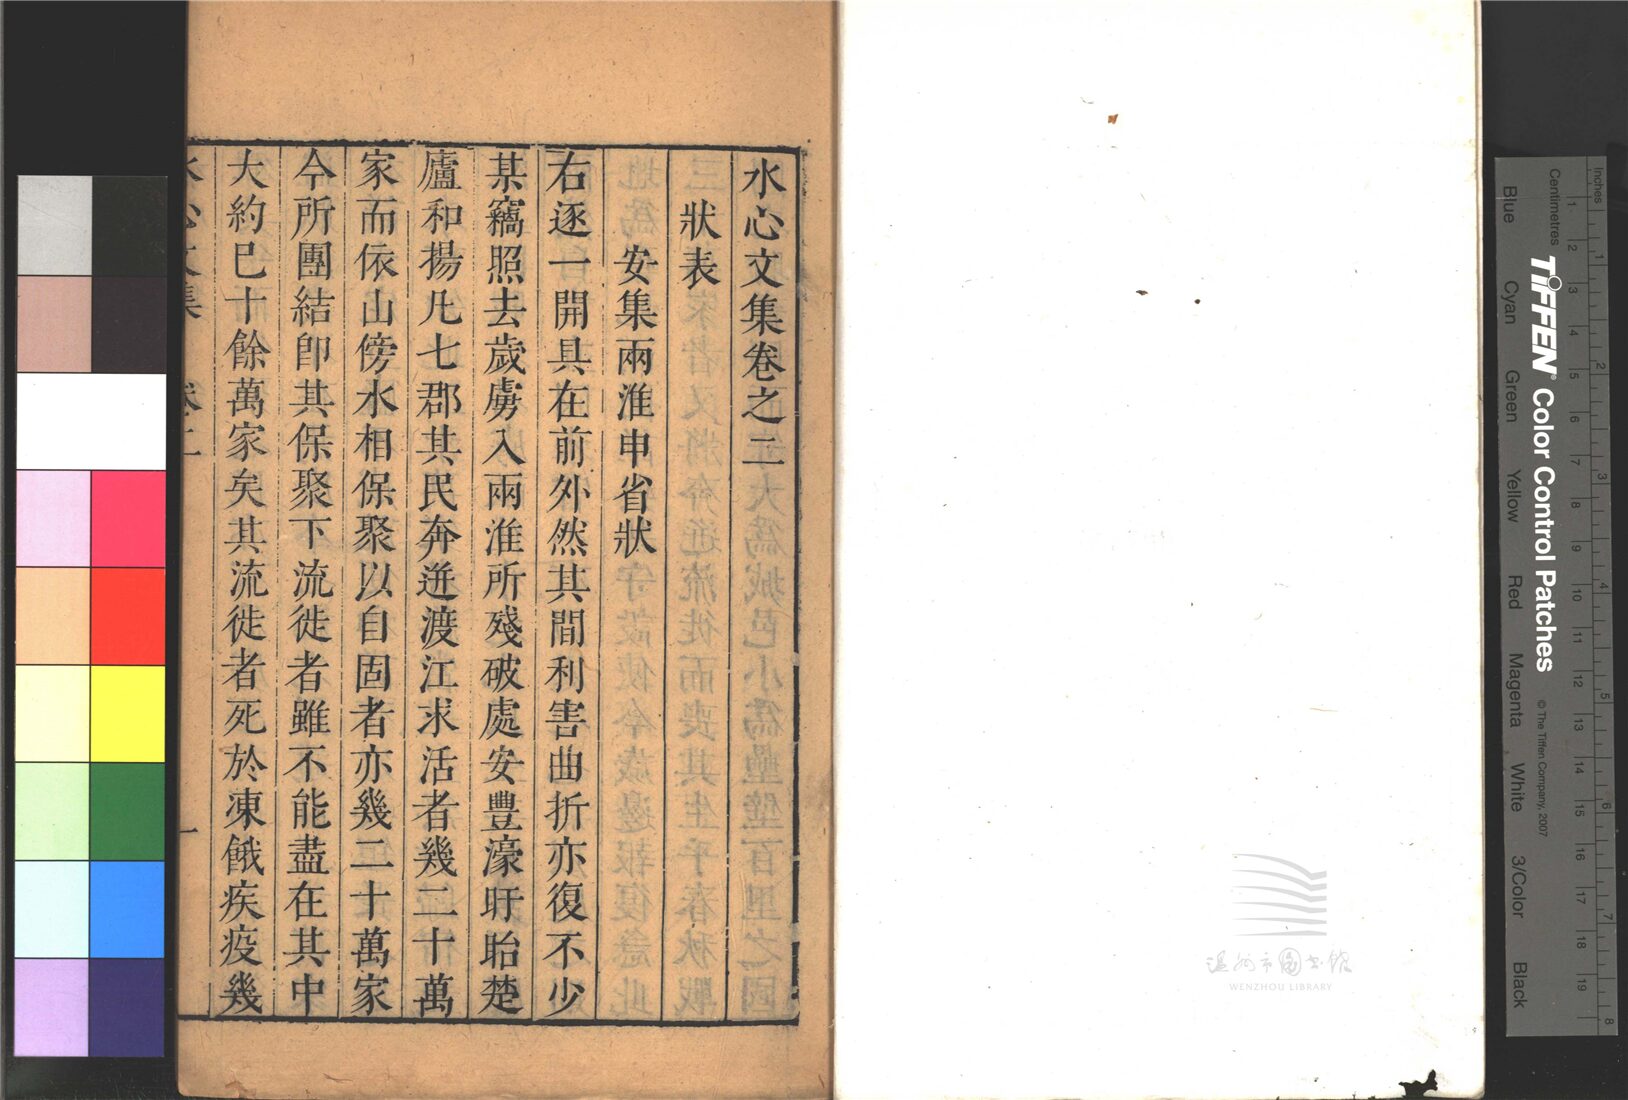 水心文集卷之二
狀表
安集兩淮申省狀
右逐一開具在前外然其間利害曲折亦復不少
某竊照去歲虜入兩淮所殘破處安豐濠盱眙楚
廬和揚凡七郡其民奔迸渡江求活者幾二十萬
家而依山傍水相保聚以自固者亦幾二十萬家
今所團結卽其保聚下流徙者雖不能盡在其中
大約巳十餘萬家矣其流徙者死於凍餓疾疫幾
水心文集 卷二 一
WENZHOU LIBRARY
Inches
Centimetres
TIFFEN® Color Control Patches
© The Tiffen Company, 2007
Blue Cyan Green Yellow Red Magenta White 3/Color Black
1 2 3 4 5 6 7 8 9 10 11 12 13 14 15 16 17 18 19
1 2 3 4 5 6 7 8